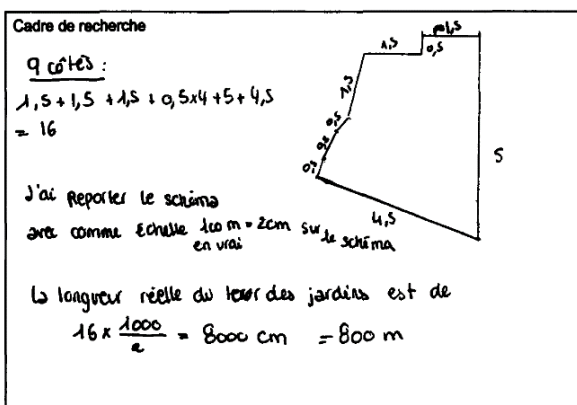 Cadre de recherche
9 côtés :
1,5 + 1,5 + 1,5 + 0,5x4 + 5 + 4,5
= 16
1,5
1,5
0,5
1,5
0,5
0,5
0,5
5
4,5
J'ai Reporter le schéma
avec comme Echelle 100 m = 2cm sur le schéma
en vrai
La longueur réelle du tour des jardins est de
16 x 1000/2 = 8000 cm = 800 m